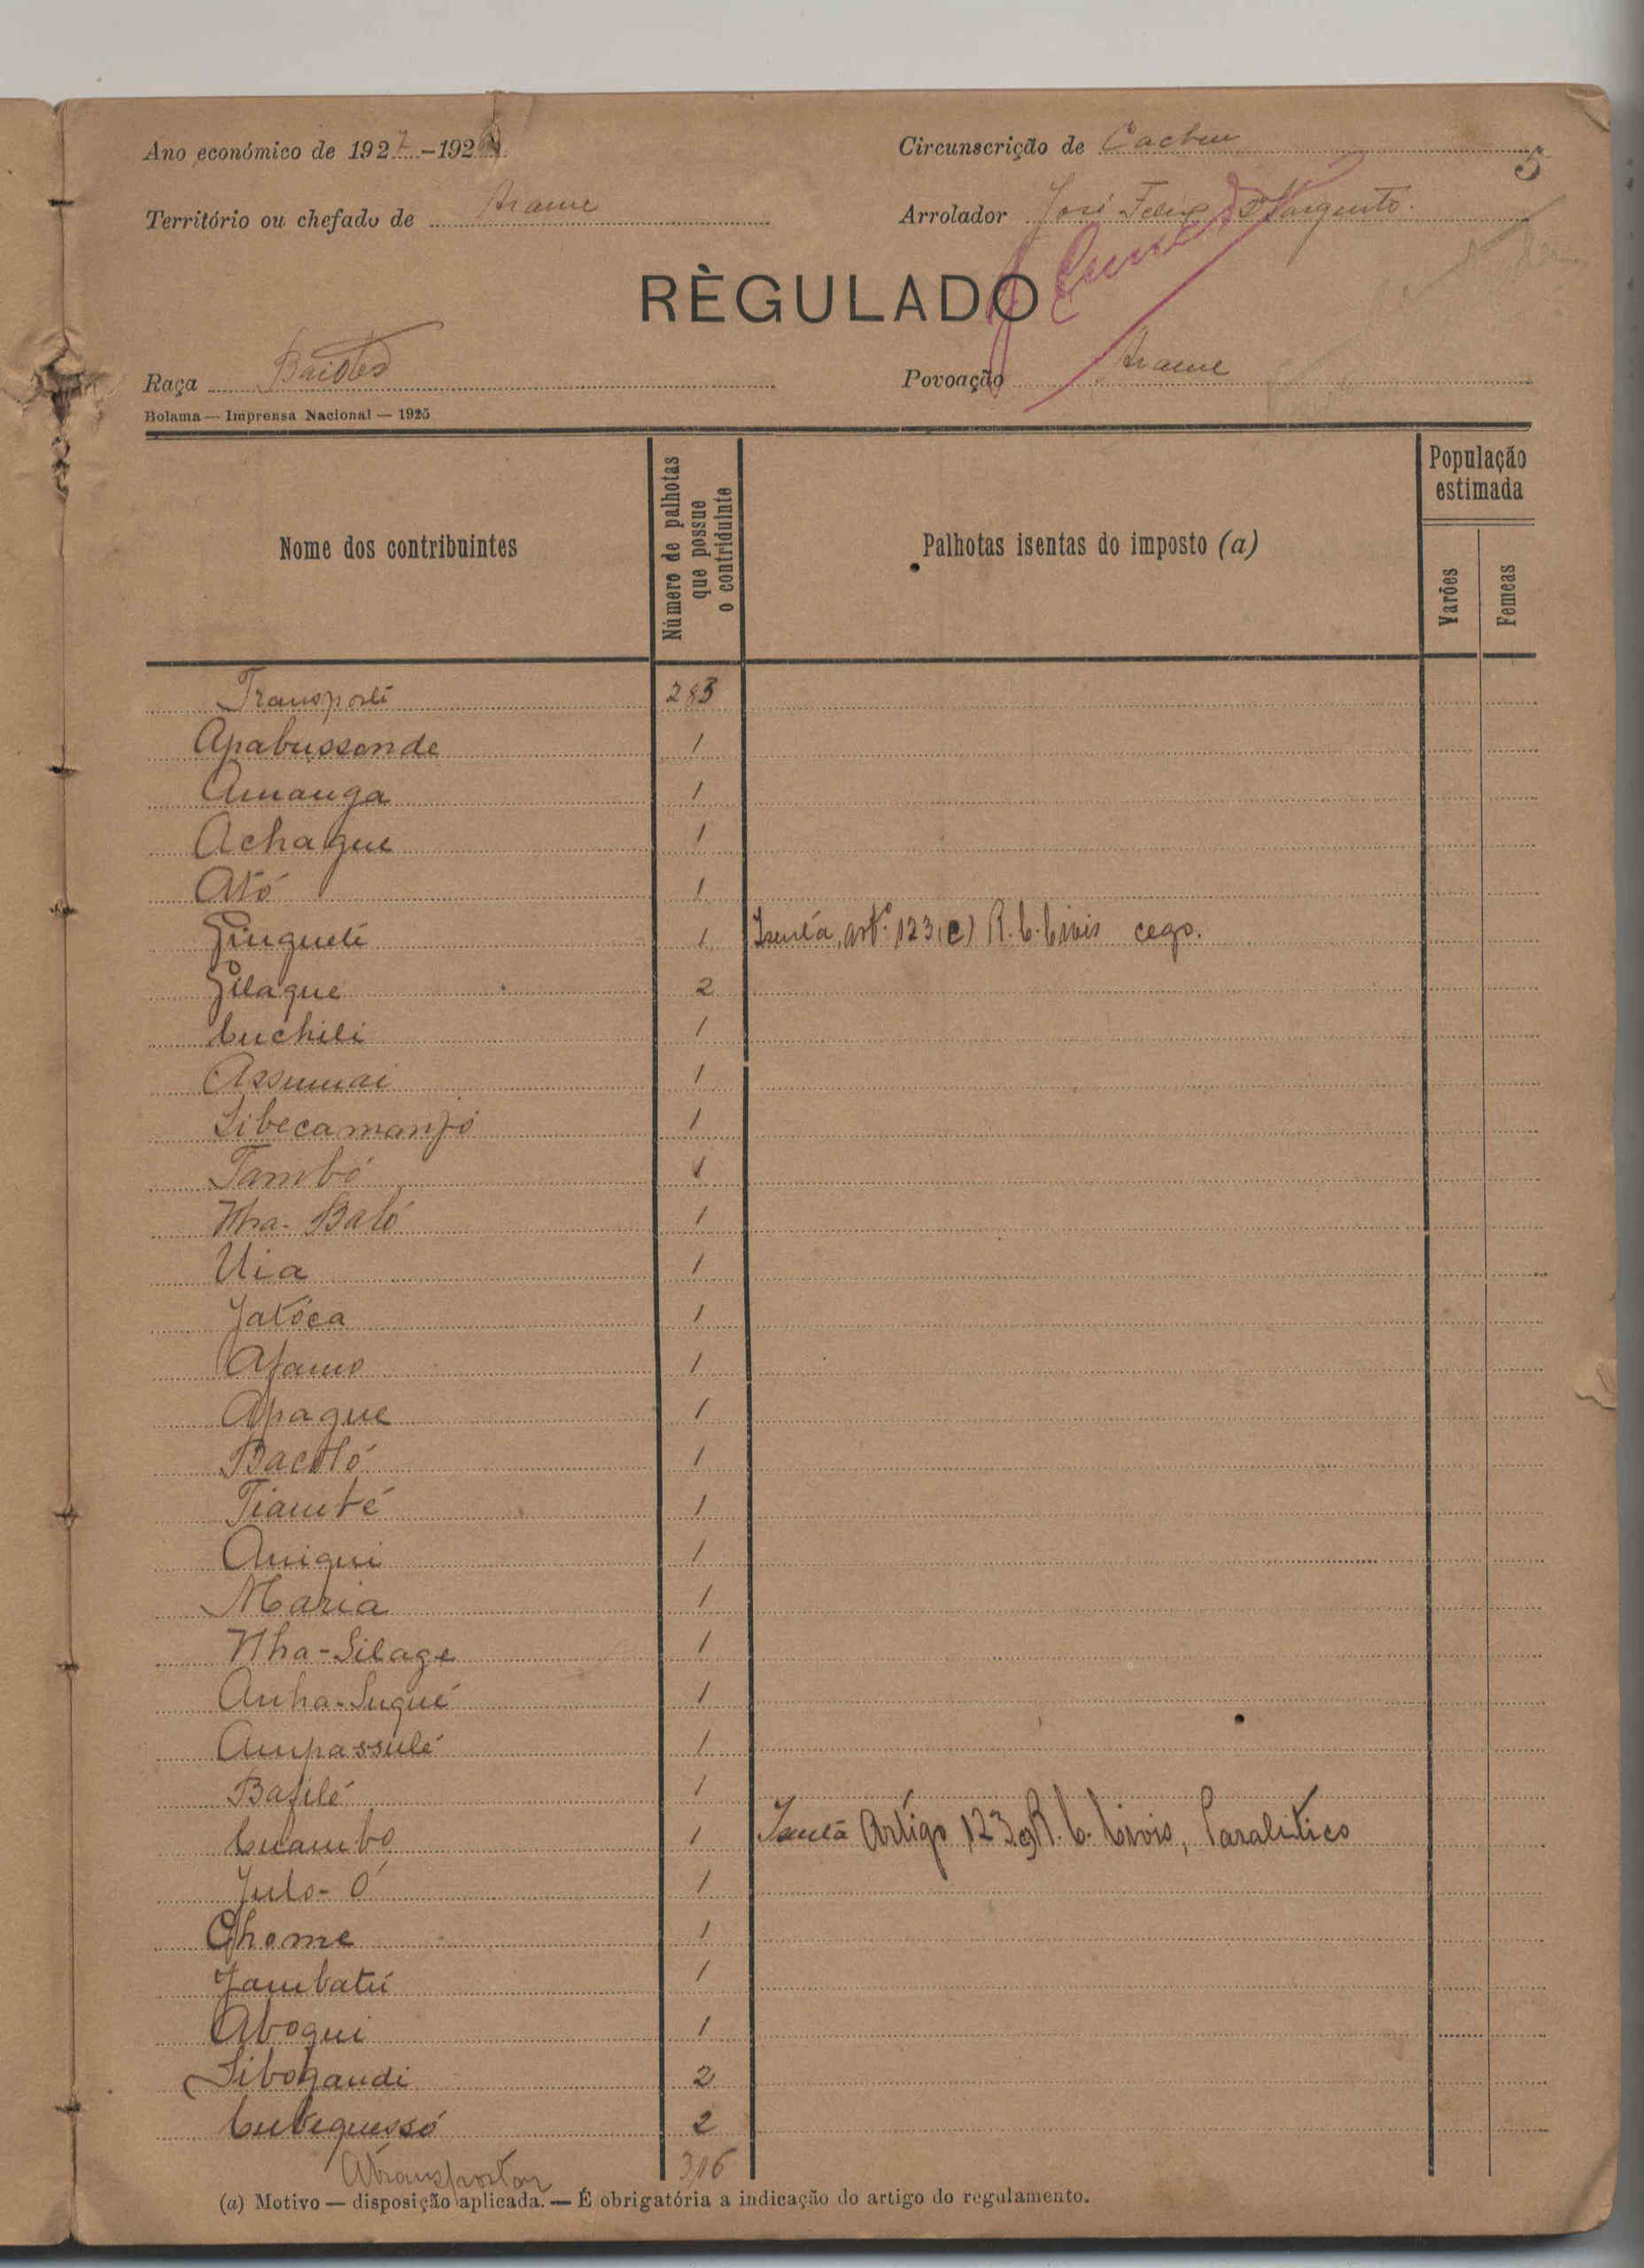 Ano económico de 1927-192
Circunscrição de Cacheu
5
Território ou chefado de Arame
Arrolador José Felix 2º Sargento.
RÈGULADO
Raça Baiotes
Povoação Arame
Bolama — Imprensa Nacional — 1925
Nome dos contribuintes
Número de palhotas que possue o contriduinte
Palhotas isentas do imposto (a)
População estimada
Varões
Femeas
Transporte 283
Apabussonde 1
Amanga 1
Achaque 1
Ató 1
Gingueté 1 Isenta, artº. 123(c) R. C. Civis cego.
Gilaque 2
Cuchili 1
Assumai 1
Sibecamanjó 1
Tambó 1
Nha-Baló 1
Uia 1
Jatóca 1
Afamo 1
Apaque 1
Bacoló 1
Tiambé 1
Aniqui 1
Maria 1
Nha-Silage 1
Anha-Suqué 1
Ampassulé 1
Bafilé 1
Culambo 1 Isenta Artigo 123 R. C. Civis, Paralitico
Julo-Ó 1
Ghome 1
Jambatú 1
Aboqui 1
Sibohandi 2
Cubequessó 2
A transportar 316
(a) Motivo — disposição aplicada. — É obrigatória a indicação do artigo do regulamento.